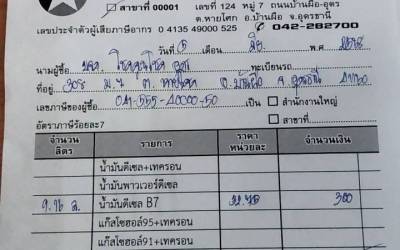 สาขาที่ 00001 เลขที่ 124 หมู่ 7 ถนนบ้านผือ-อุดร
ต.หายโศก อ.บ้านผือ จ.อุดรธานี
เลขประจำตัวผู้เสียภาษีอากร 0 4135 49000 525 042-282700
วันที่ เดือน พ.ศ
นามผู้ซื้อ ทะเบียนรถ
ที่อยู่ 308 ม.7 ต. อ.บ้านผือ จ.อุดรธานี 41160
เลขภาษีของผู้ซื้อ เป็น สำนักงานใหญ่
อัตราภาษีร้อยละ7 สาขาที่
จำนวน ลิตร รายการ ราคา หน่วยละ จำนวนเงิน
น้ำมันดีเซล+เทครอน
น้ำมันพาวเวอร์ดีเซล
9.16 ล. น้ำมันดีเซล B7 300
แก๊สโซฮอล์95+เทครอน
แก๊สโซฮอล์91+เทครอน